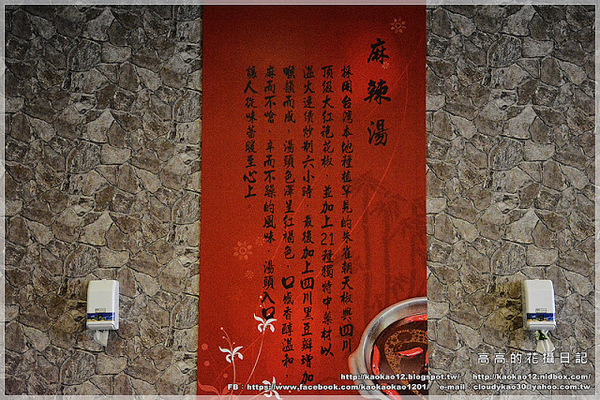 麻辣湯
採用台灣本地種植罕見的朱雀朝天椒與四川
頂級大紅袍花椒，並加上21種獨特中藥材以
溫火連續炒制六小時，最後加上四川黑豆瓣增加
喉韻而成，湯頭色澤呈紅褐色，口感香醇溫和，
麻而不嗆，辛而不燥的風味，湯頭入口，
讓人從味蕾暖至心上
高高的花攝日記
http://kaokao12.blogspot.tw/ http://kaokao12.nidbox.com/
FB：https://www.facebook.com/kaokaokao1201/ e-mail：cloudykao30@yahoo.com.tw